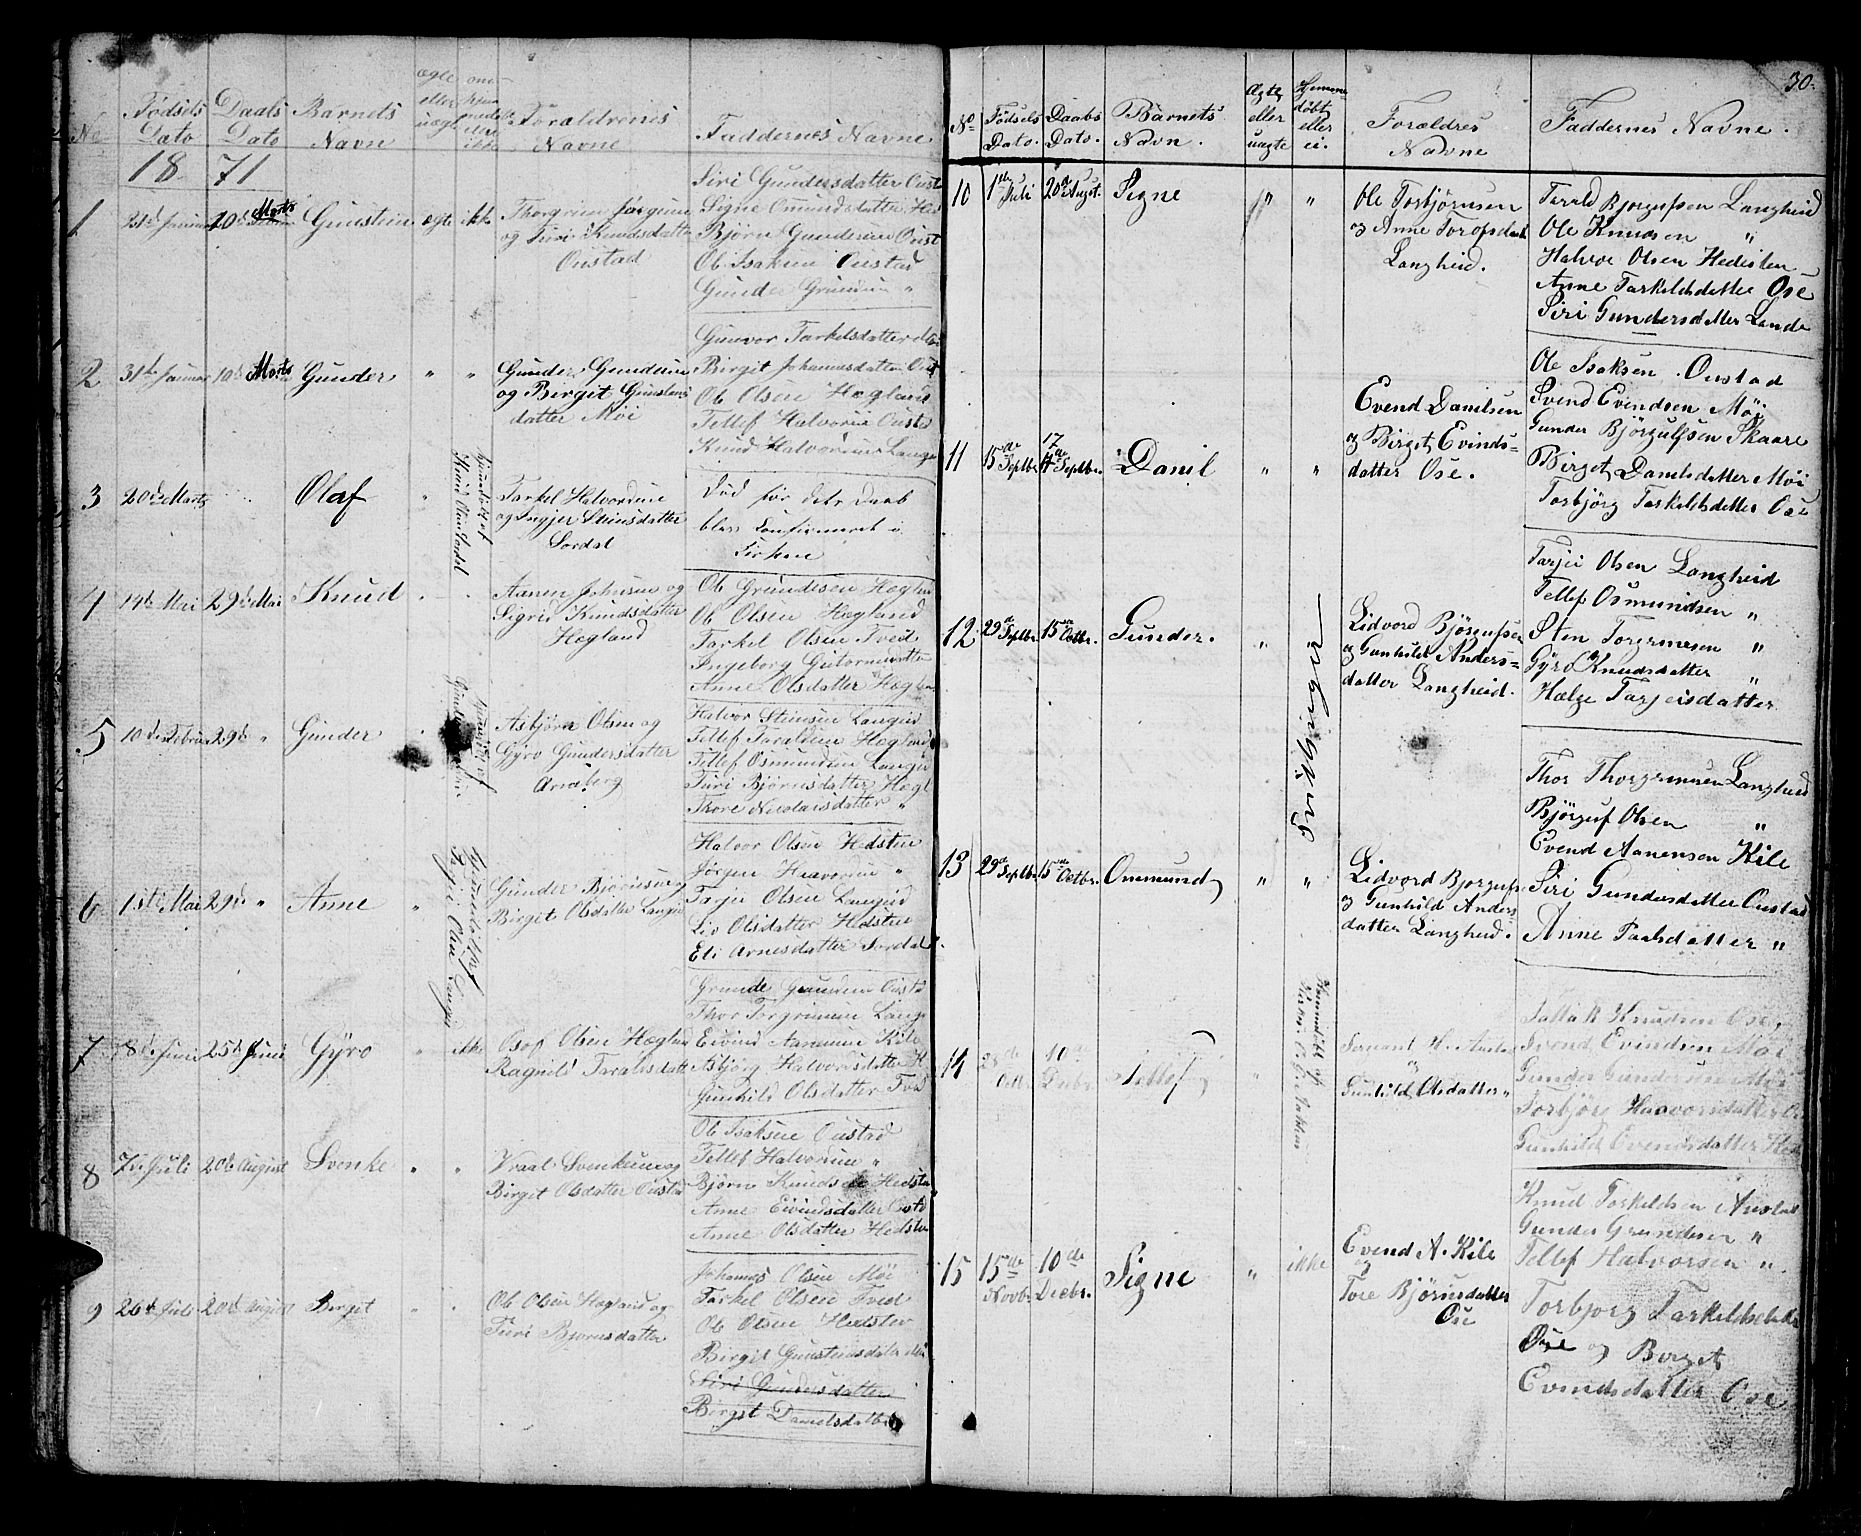 No
Fødsels Dato
Daabs Dato
Barnets Navn
ægte eller uægte
Foræld​renes Navne
Faddernes Navne
18 71
1
31te Januar
10de Marts
Gunstein
ægte
ikke
og Turi Knudsdatter
Oustad
Siri Gundersdatter Oust
Signe Omundsdatter Hed
Bjørn Gundersen Oust
Ole Isaksen Oustad
Gunder Grundesen "
2
31te Januar
10de Marts
Gunder
"
"
Gunder Gundersen
og Birgit Gunsteins
datter Moi
Gunvor Tarkelsdatter Moi
Birgit Johannesdatter Oust
Ole Olsen Hægland
Tellef Halvorsen Oustad
Knud Halvorsen Lange
3
20de Marts
Olaf
"
hjemdøbt af
Knud Sordal
Tarkel Halvorsen
og Ingjer Steinsdatter
Sordal
Død før dets Daab
blev Confirmeret i
Kirken
4
14de Mai
29de Mai
Knud
Aanen Johnsen og
Sigrid Knudsdatter
Hægland
Ole Grundesen Hægland
Ole Olsen Hægland
Tarkel Olsen Tved
Ingeborg Gutormsdatter
Anne Olsdatter Hægland
5
10de Februar
29de "
Gunder
hjemdøbt af
Asbjørn Olsen og
Gyro Gundersdatter
Halvor Steinsen Langeid
Tellef Taraldsen Hægland
Tellef Osmundsen Langeid
Turi Bjørnsdatter Hægl
Thore Nicolaisdatter "
6
1ste Mai
29de "
Anne
"
hjemdøbt af
Tarjei Olsen Langeid
Gunder Bjørnsen og
Birgit Olsdatter Langeid
Halvor Olsen Hedsten
Jørgen Halvorsen "
Tarjei Olsen Langeid
Liv Olsdatter Hedsten
Eli Arnesdatter Sordal
7
18de Juni
25de Juni
Gyro
"
ikke
Osof Olsen Hægland
Ragnild Taraldsdatter
Grunde Gundersen Oustad
Thor Torgrimsen Lange
Eivind Aanensen Kile
Asbjørg Halvorsdatter H
Gunhild Olsdatter Tved
8
7de Juli
20de August
Svenke
"
"
Vraal Svenkesen og
Birgit Olsdatter Oustad
Ole Isaksen Oustad
Tellef Halvorsen "
Bjørn Knudsen Hedsten
Anne Eivindsdatter Oustd
Anne Olsdatter Hedsten
9
26de Juli
20de August
Birget
Ole Olsen Hægland og
Turi Bjørnsdatter
Johannes Olsen Moi
Tarkel Olsen Tved
Ole Olsen Hedsten
Birgit Gunsteinsdatter Moi
Siri Gundersdatter
Birget Danielsdatter
30.
No
Fødsels Dato.
Daabs Dato.
Barnets Navn.
Ægte eller uægte
Hjemmedøbt eller ei.
Forældres Navne
Faddernes Navne.
10
1ste Juli
20de August.
Signe
"
"
Ole Torbjörnsen
og Anne Torofsdatt
Langheid.
Tarald Bjorgufsen Langheid
Ole Knudsen "
Halvor Olsen Hedesten
Anne Tarkeldsdatter Ose
Siri Gundersdatter Lande
11
15de Septbr.
17de Septbr.
Daniel
"
"
Evend Danilsen
og Birget Evinds-
datter Ose.
Ole Isaksen Oustad
Svend Evendsen Möi
Gunder Björgulfsen Skaare
Birget Danielsdatter Möi
Torbjörg Tarkeldsdatter Ose
12
29de Septbr.
15de Octbr.
Gunder.
"
Tvillinger
Lidvord Björgufsen
og Gunhild Anders-
datter Langheid.
Tarjei Olsen Langheid
Tellef Osmundsen "
Sten Torgrimsen "
Gyro Knudsdatter "
Helge Tarjeisdatter
13
29de Septbr.
15de Octbr.
Ommund
"
"
Lidvord Bjorgufs
og Gunhild Anders
datter Langheid.
Thor Thorgrimsen Langheid
Björguf Olsen "
Evend Aanensen Kile
Siri Gundersdatter Oustad
Anne Paalsdatter "
14
28de Octb.
10de Decbr.
Tellef
"
Hjemmedøbt af
og
Gunhild Olsdatter "
Tallak Knudsen Ose
Svend Evindsen Möi
Gunder Gundersen Möi
Torbjörg Haavorsdatter O
Gunhild Evendsdatter
15
15de Novbr.
10de Decbr.
Signe
"
ikke
Evend A. Kile
og
Tore Björnsdatter
Ose
Knud Torkeldsen Austad
Gunder Grundesen "
Tellef Halvorsen "
Torbjorg Tarkeldsdatter
Ose og Birget
Evendsdatter Ose